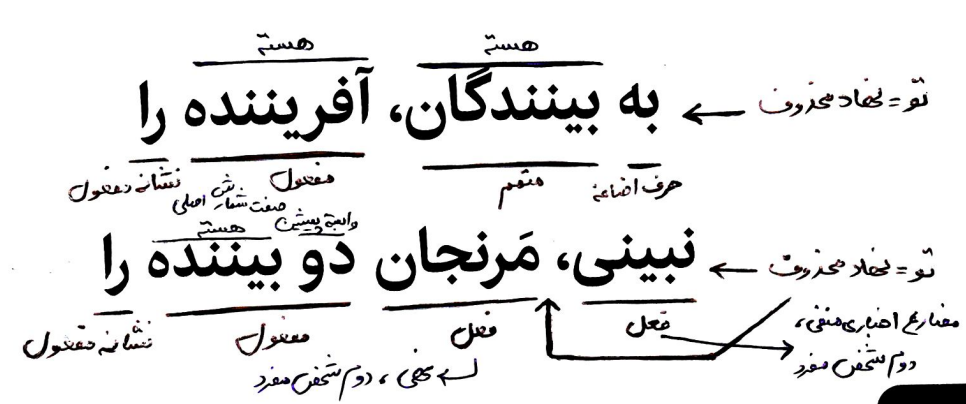 هسته هسته
تو = نهاد محذوف ← به بینندگان، آفریننده را
حرف اضافه متمم مفعول نشانه مفعول
وابستهٔ پیشین صفت شمارشی اصلی
هسته
تو = نهاد محذوف ← نبینی، مَرنجان دو بیننده را
فعل فعل مفعول نشانه مفعول
مضارع اخباری منفی،
دوم شخص مفرد
نهی، دوم شخص مفرد